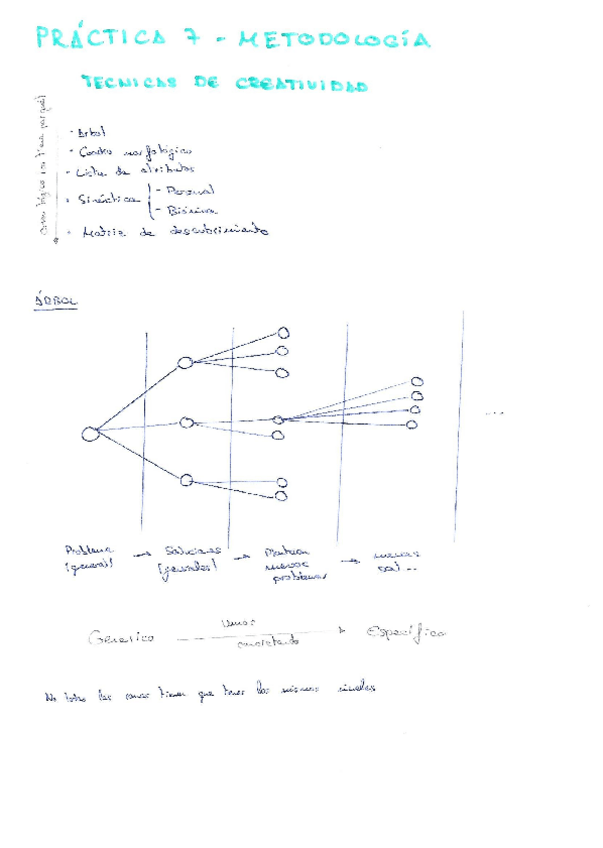 PRÁCTICA 7 - METODOLOGÍA
TECNICAS DE CREATIVIDAD
- Árbol
- Cuadro morfológico
- Lista de atributos
- Sinéctica
- Personal
- Biónica
- Matriz de descubrimiento
ÁRBOL
Problema (general) → Soluciones (generales) → Plantean nuevos problemas → nuevas sol...
...
Genérico
vamos concretando
Específico
No todas las ramas tienen que tener los mismos niveles